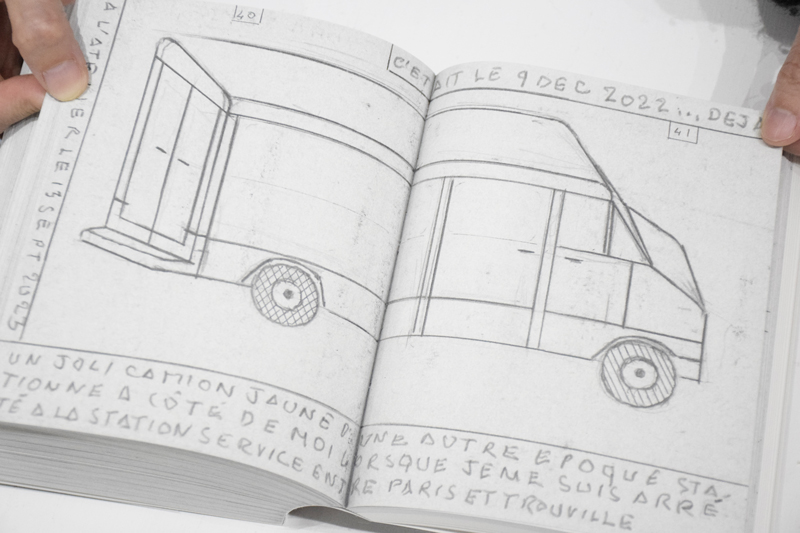 40
C'ETAIT LE 9 DEC 2022... DEJA
41
A L'ATELIER LE 13 SEPT 2023
UN JOLI CAMION JAUNE D'UNE AUTRE EPOQUE STA-
TIONNE A CÔTÉ DE MOI LORSQUE JE ME SUIS ARRÉ
TÉ A LA STATION SERVICE ENTRE PARIS ET TROUVILLE